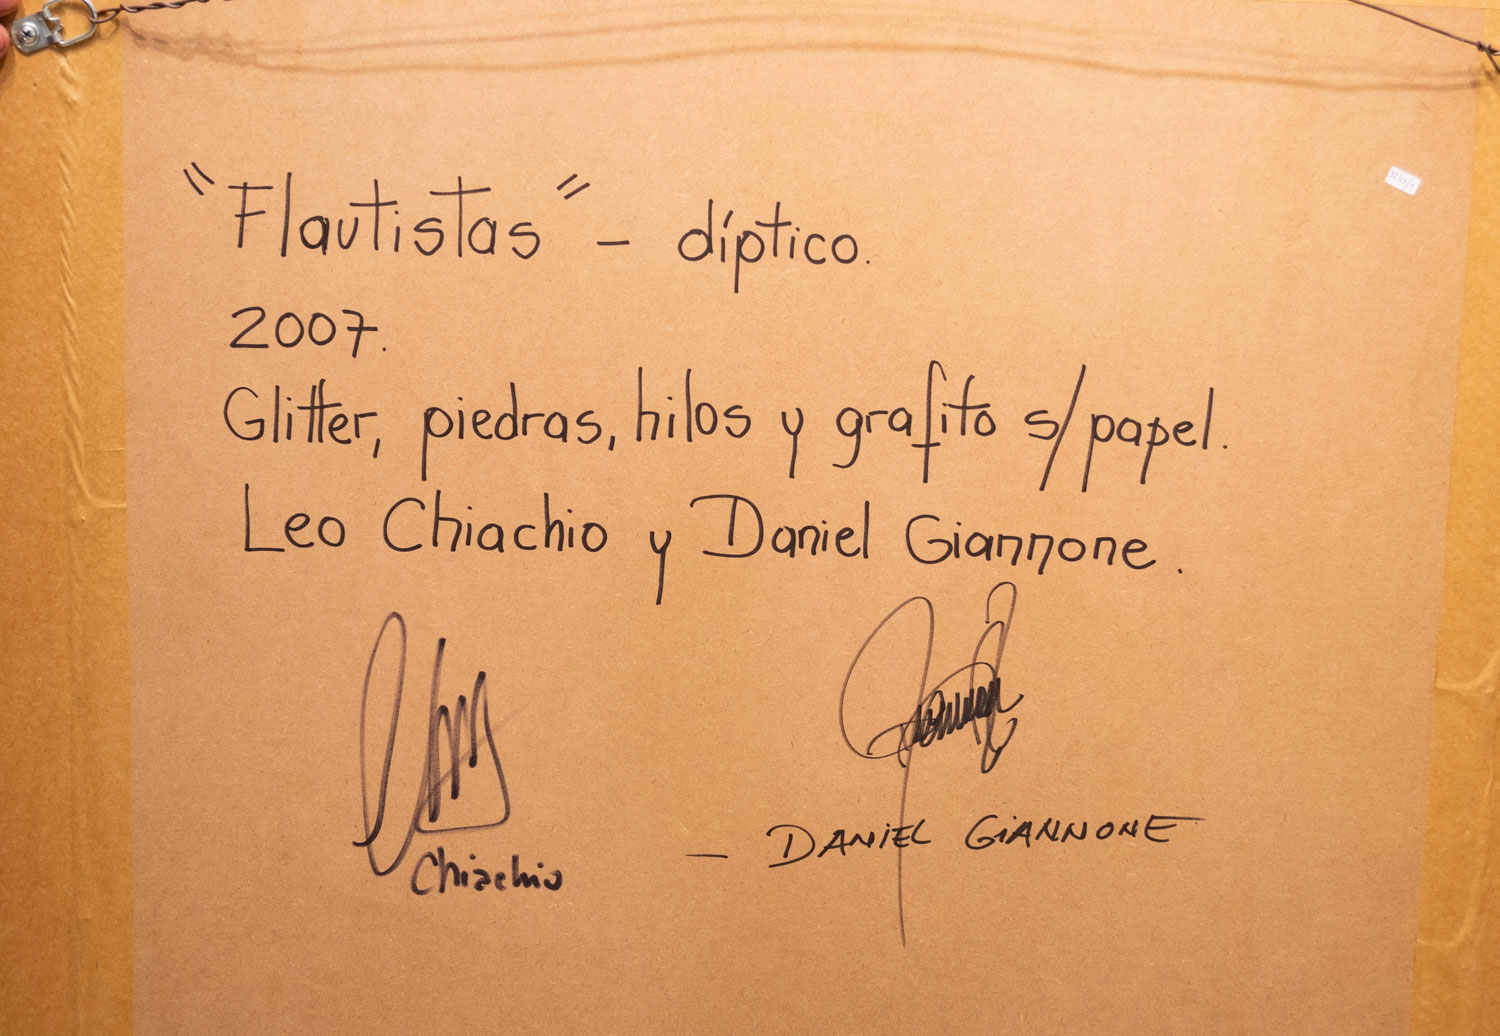 "Flautistas" - díptico.
2007.
Glitter, piedras, hilos y grafito s/papel.
Leo Chiachio y Daniel Giannone.
Chiachio
- DANiEL GiANNONE